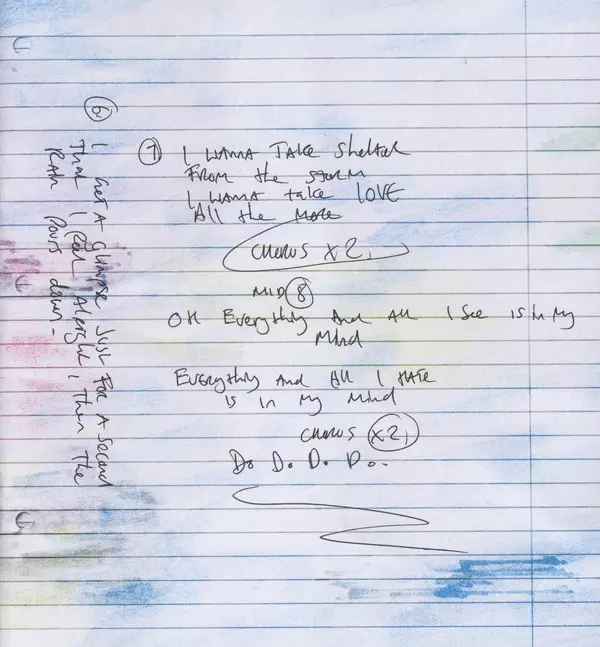 6
I GOT A GLIMPSE JUST FOR A SECOND
THAT I FEEL Alright, THEN THE
RAIN POURS DOWN-
7
I WANNA TAKE Shelter
FROM the STORM
I WANNA take LOVE
All the MORE
CHORUS x 2,
MID 8
OH EVERYTHING And All I SEE IS In My
MInd
EVERYTHING And All I HATE
IS In My MInd
CHORUS x 2,
Do Do Do Do..